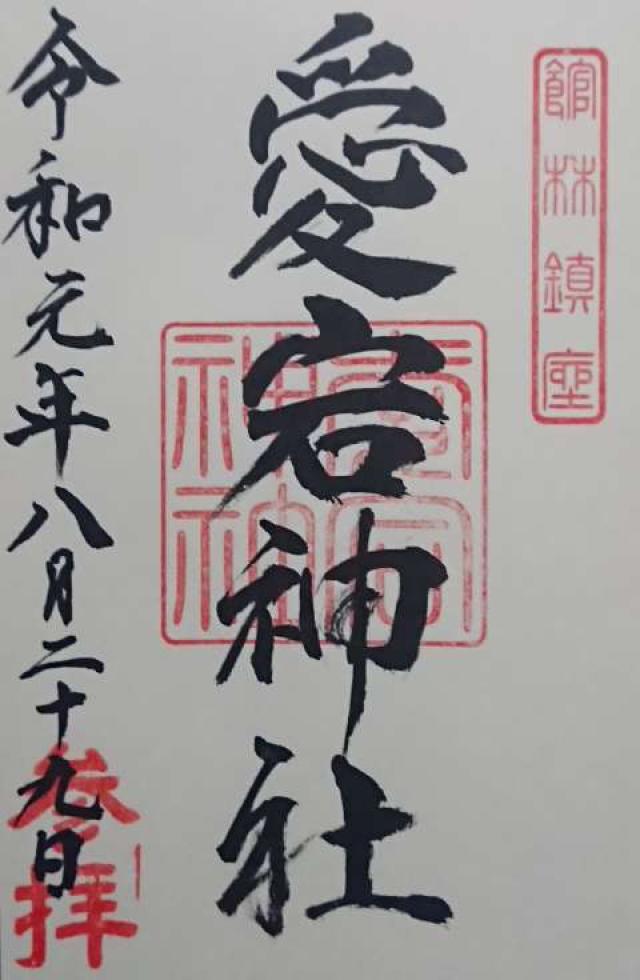 館林鎮座
愛宕神社
愛宕神社
令和元年八月二十九日
参拝